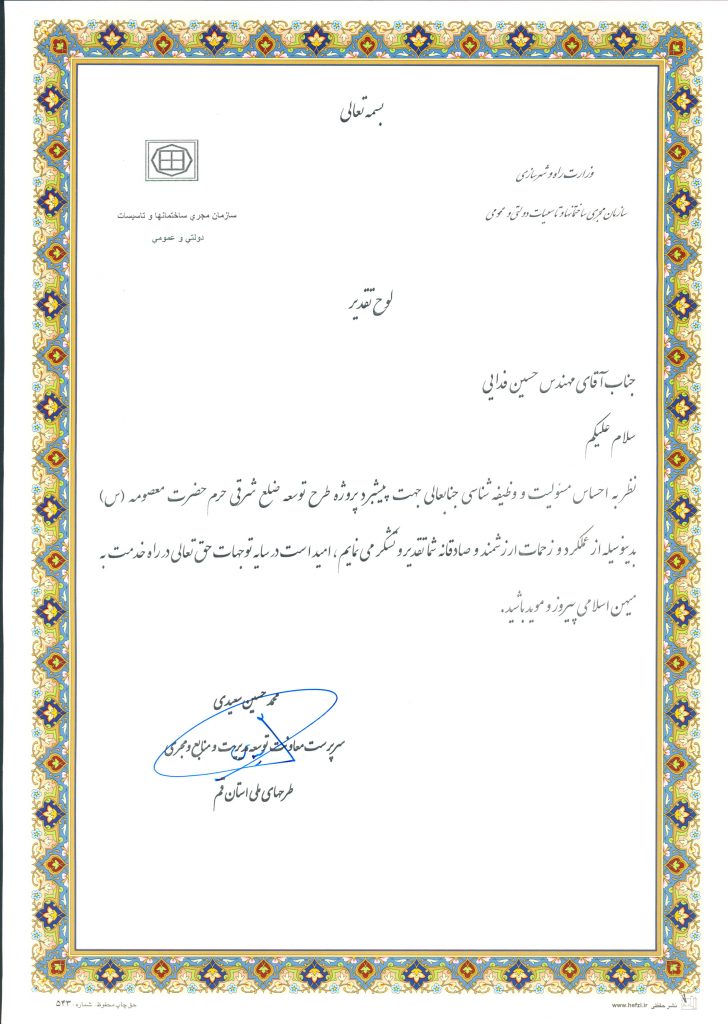 بسمه تعالی
وزارت راه و شهرسازی
سازمان مجری ساختمانها و تاسیسات دولتی و عمومی
سازمان مجري ساختمانها و تاسيسات
دولتي و عمومي
لوح تقدیر
جناب آقای مهندس حسین فدایی
سلام علیکم
نظر به احساس مسؤلیت و وظیفه شناسی جنابعالی جهت پیشبرد پروژه طرح توسعه ضلع شرقی حرم حضرت معصومه (س)
بدینوسیله از عملکرد و زحمات ارزشمند و صادقانه شما تقدیر و تشکر می نمایم ، امید است در سایه توجهات حق تعالی در راه خدمت به
میهن اسلامی پیروز و موید باشید.
محمد حسین سعیدی
سرپرست معاونت توسعه مدیریت و منابع و مجری
طرحهای ملی استان قم
حق چاپ محفوظ . شماره: ۵۴۳
نشر حفظی www.hefzi.ir